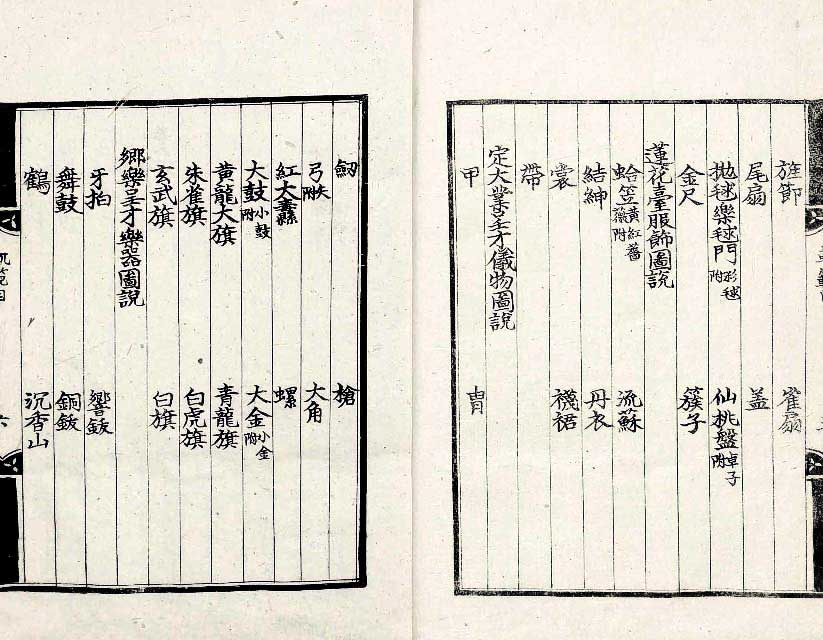 旌節 雀扇
尾扇 盖
抛毬樂毬門 附彩毬 仙桃盤 附卓子
金尺 簇子
蓮花臺服飾圖說
蛤笠 黃紅薔薇附 流蘇
結紳 丹衣
裳 襪裙
帶
定大業呈才儀物圖說
甲 冑
劒 槍
弓 附矢 大角
紅大纛 螺
大鼓 附小鼓 大金 附小金
黃龍大旗 青龍旗
朱雀旗 白虎旗
玄武旗 白旗
鄉樂呈才樂器圖說
牙拍 響鈸
舞鼓 銅鈸
鶴 沉香山
六